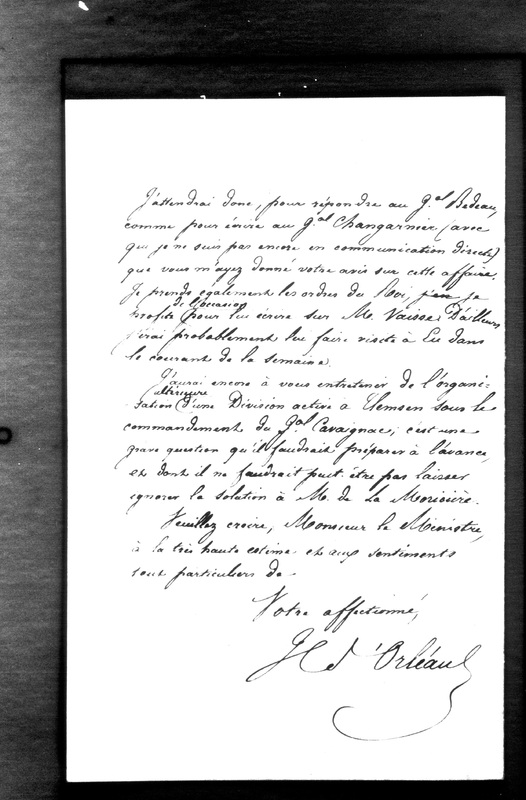 J'attendrai donc, pour répondre au G.al Bedeau,
comme pour écrire au G.al Changarnier (avec
qui je ne suis pas encore en communication directe)
que vous m'ayez donné votre avis sur cette affaire.
Je prends également les ordres du Roi, j'en je
de l'occasion
profite pour lui écrire sur M. Vaïsse. D'ailleurs,
j'irai probablement lui faire visite à Eu dans
le courant de la semaine.
J'aurai encore à vous entretenir de l'organi=
ultérieure
sation d'une Division active à Tlemsen sous le
commandement du G.al Cavaignac; c'est une
grave question qu'il faudrait préparer à l'avance,
et dont il ne faudrait peut-être pas laisser
ignorer la solution à M. de La Moricière.
Veuillez croire, Monsieur le Ministre,
à la très haute estime et aux sentiments
tout particuliers de
Votre affectionné,
H d'Orléans